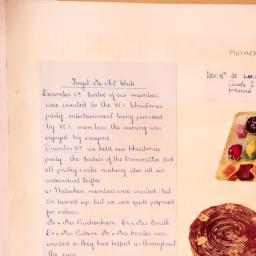 Forget Me Not Club
December 1st Twelve of our members
were invited to the W.I. Christmas
party, entertainment being provided
by W.I. members, the evening was
enjoyed by everyone
December 8th we held our Christmas
party. The ladies of the Committee did
all pastry & cake making also all our
individual trifles
41 Nutwken members were invited, but
turned up, but we were quite prepared
for extras.
Mr & Mrs Buckenham, Dr & Mrs Smith
Dr & Mrs Gibson, Mr & Mrs
invited as they had helped us throughout
the year
MOTHER
Dec 8th